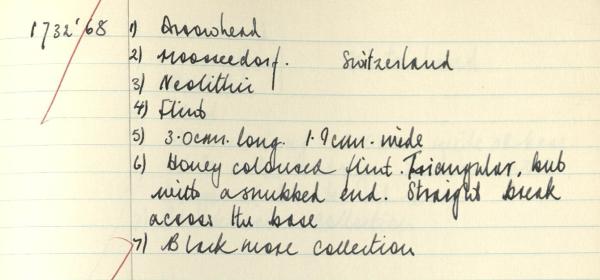 1732'68 1) Arrowhead
2) Moosseedorf. Switzerland
3) Neolithic
4) Flint
5) 3.0cm. long. 1.9cm. wide
6) Honey coloured flint. Triangular, but
with a snubbed end. Straight break
across the base
7) Blackmore collection